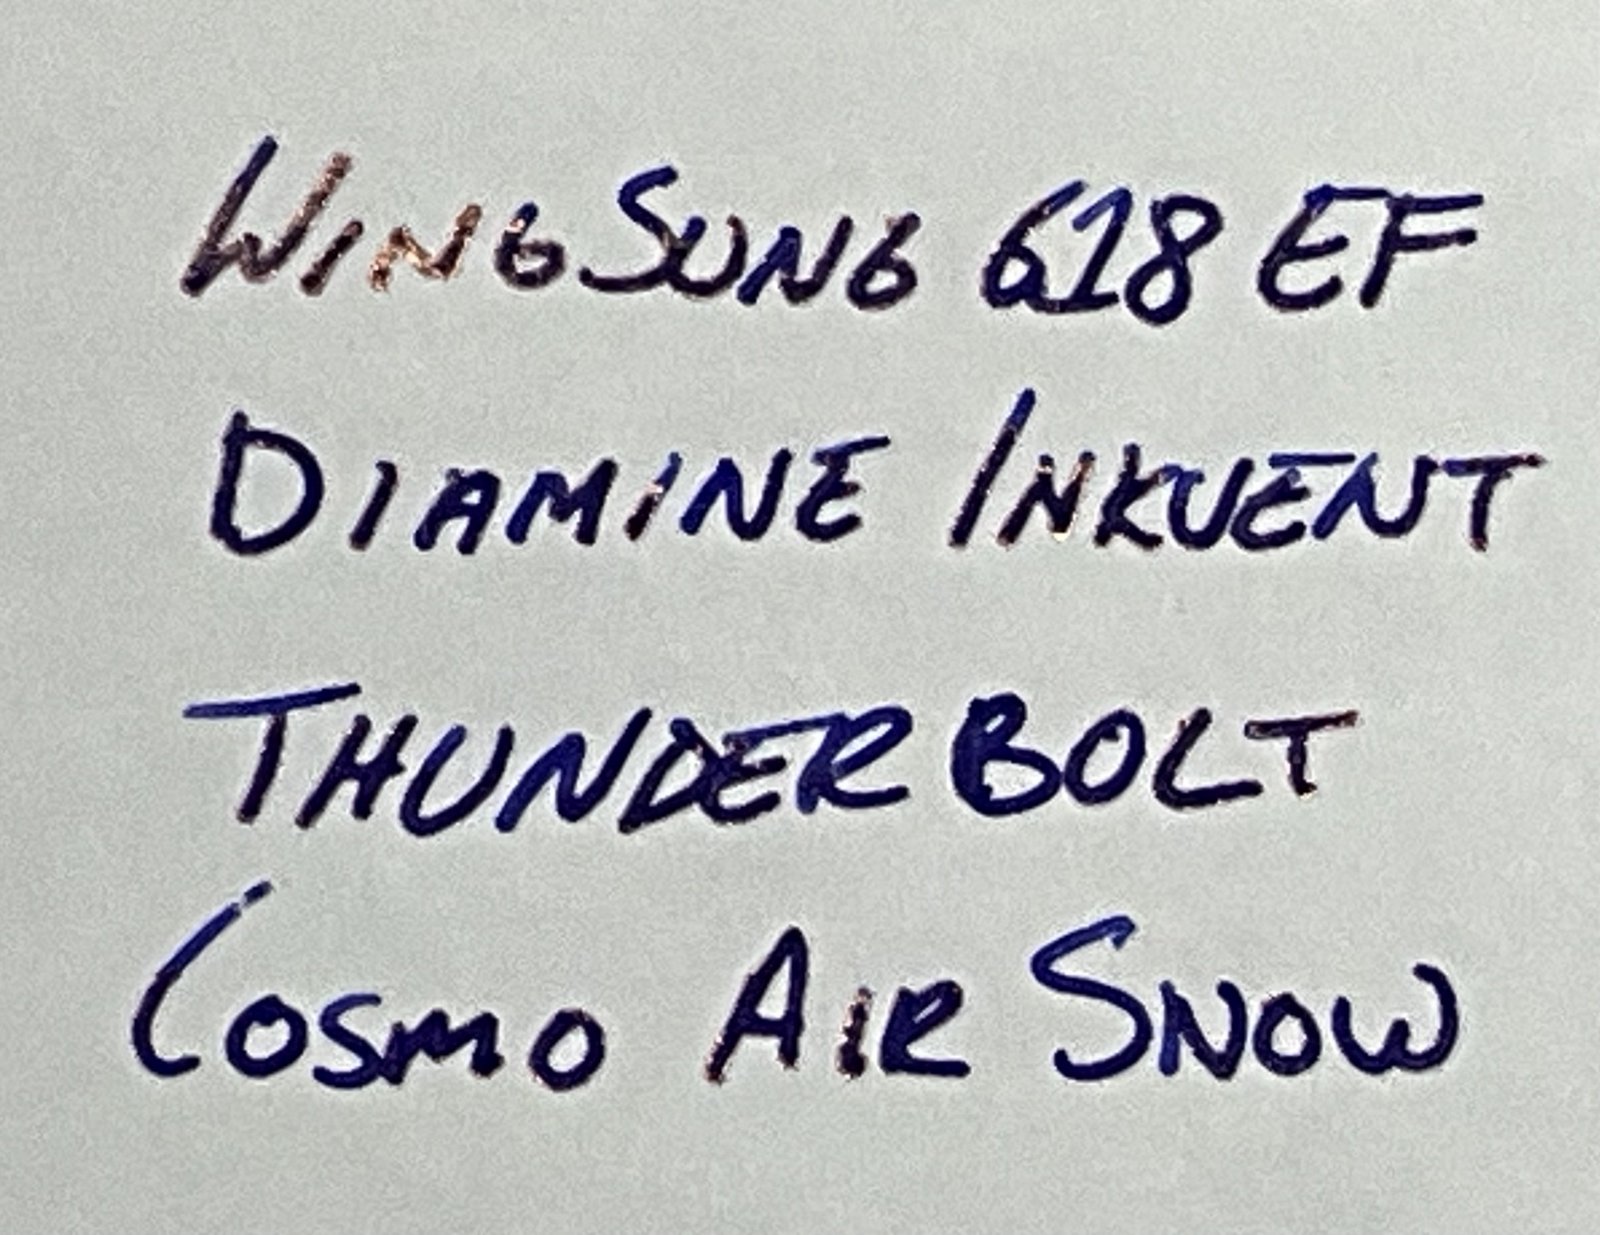 WING SUNG 618 EF
DIAMINE INKVENT
THUNDER BOLT
COSMO AIR SNOW